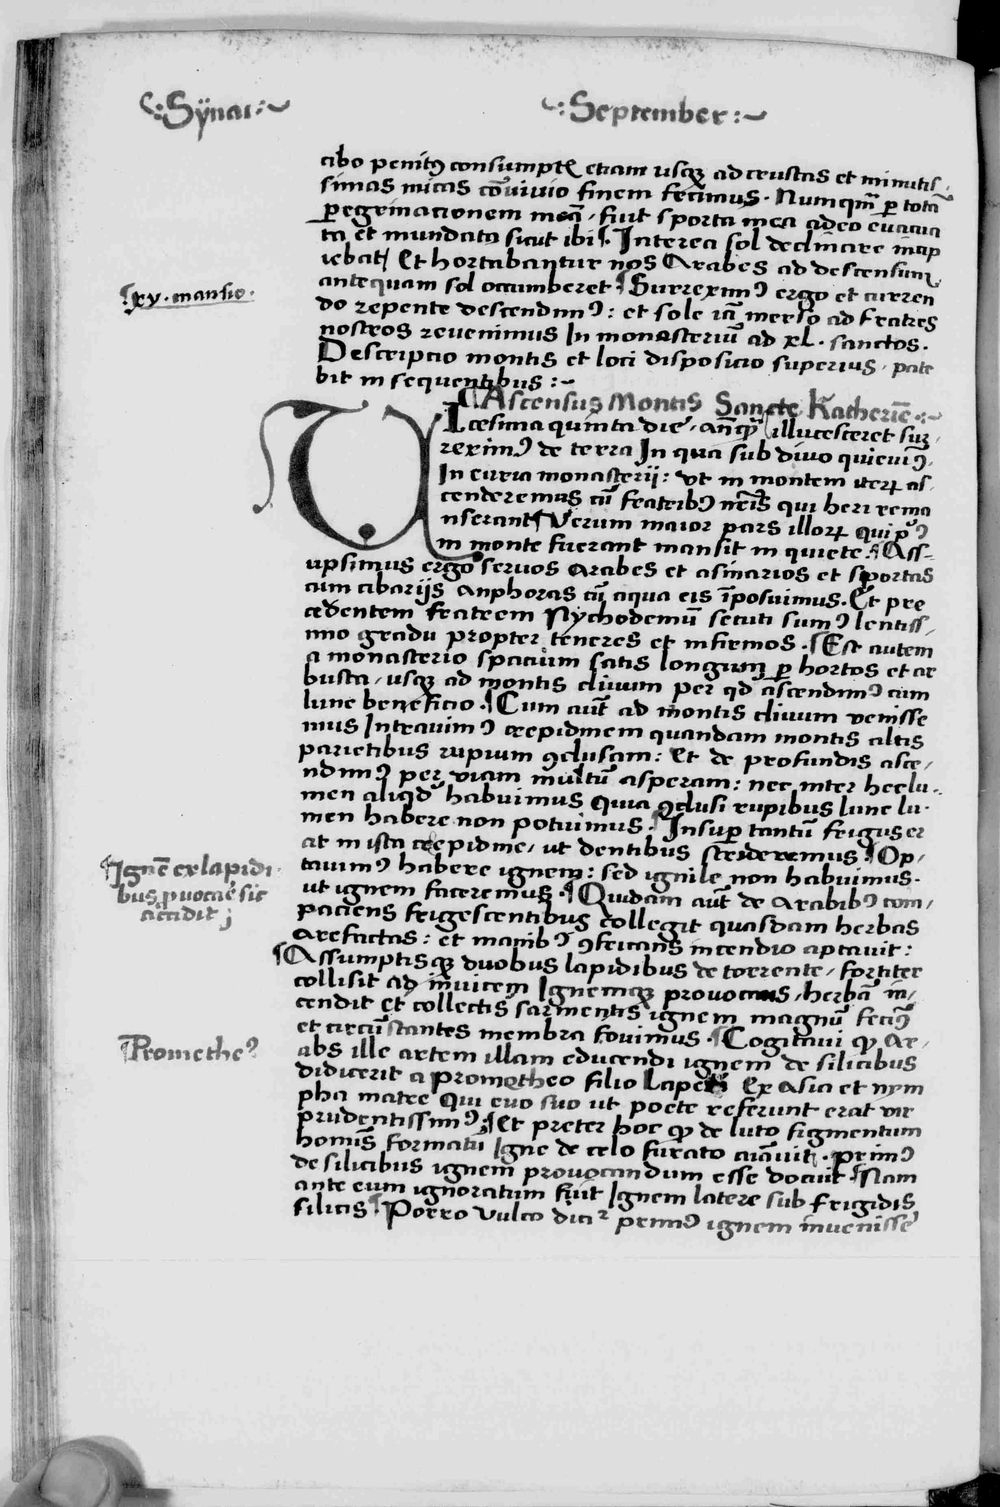 Sÿnai
September
cibo penitꝰ consumptꝭ etiam usqꝫ ad crustas et minutis
simas micas cōuiuio finem fecimus. Numqm̄ ꝑ totā
ꝑegrinacionem meā, fuit sporta mea adeo euacua
ta et mundata sicut ibi. Interea sol declinare incip
iebat Et hortabantur nos Arabes ad descensum
antequam sol occumberet ¶ Surreximꝰ ergo et curren
¶ xv. mansio.
do repente descendimꝰ: et sole iā merso ad fratres
nostros reuenimus In monasteriū ad xl. sanctos.
Descripcio montis et loci disposicio superius, pate
bit in sequentibus:~
¶ Ascensus Montis Sancte Katherīe.~
VIcesima quinta die, an̄qꝫ illucesceret sur
reximꝰ de terra In qua sub diuo quieuimꝰ.
In curia monasterij: vt in montem iteꝝ as
cenderemus cū fratribꝰ nr̄is qui heri rema
nserant ¶ Verum maior pars illoꝝ qui pꝰ
in monte fuerant mansit in quiete. ¶ Ass
upsimus ergo seruos Arabes et asinarios et sportas
cum cibarijs Anphoras cū aqua eis īposuimus. Et pre
cedentem fratrem Nychodemū secuti sumꝰ lentiss
mo gradu propter teneres et infirmos. ¶ Est autem
a monasterio spacium satis longum ꝑ hortos et ar
busta, usqꝫ ad montis cliuum per qd̄ ascendimꝰ cum
lune beneficio. ¶ Cum aūt ad montis cliuum venisse
mus Intrauimꝰ crepidinem quandam montis altis
parietibus rupium ꝯclusam: Et de profundis asce
ndimꝰ per viam multū asperam: nec inter hec lu
men aliqd̄ habuimus Quia ꝯclusi rupibus lune lu
men habere non potuimus. ¶ Insuꝑ tantū frigus er
at in ista crepidine, ut dentibus strideremus ¶ Op
¶ Ignē ex lapidi
bus ꝓuocare sic
accidit;
tauimꝰ habere ignem: sed ignile non habuimus.
ut ignem faceremus. ¶ Quidam aūt de Arabibꝰ com
paciens frigescentibus collegit quasdam herbas
arefactas: et manibꝰ ꝯfricans incendio aptauit:
¶ Assumptisqꝫ duobus lapidibus de torrente, fortiter
collisit ad inuicem Ignemqꝫ prouocans, herbā in
cendit et collectis sarmentis ignem magnū fecimꝰ
et circūstantes membra fouimus. ¶ Cogitaui ꝙ Ar
¶ Prometheꝰ
abs ille artem illam educendi ignem de silicibus
didicerit a Prometheo filio Iapeti Ex Asia et nym
pha matre Qui euo suo ut poete referunt erat vir
prudentissimꝰ. ¶ Et preter hoc ꝙ de luto figmentum
hominis formatū Igne de celo furato aīauit. primꝰ
de silicibus ignem prouocandum esse docuit ¶ Nam
ante eum ignoratum fuit Ignem latere sub frigidis
silicis ¶ Porro Vulco dicit primꝰ ignem inuenisse